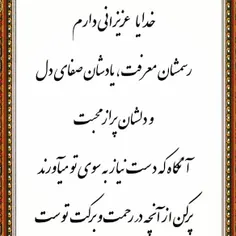 خدایا عزیزانی دارم
رسمشان معرفت، یادشان صفای دل
و دلشان پر از محبت
آنگاه که دست نیاز به سوی تو میآورند
پر کن از آنچه در رحمت و برکت توست